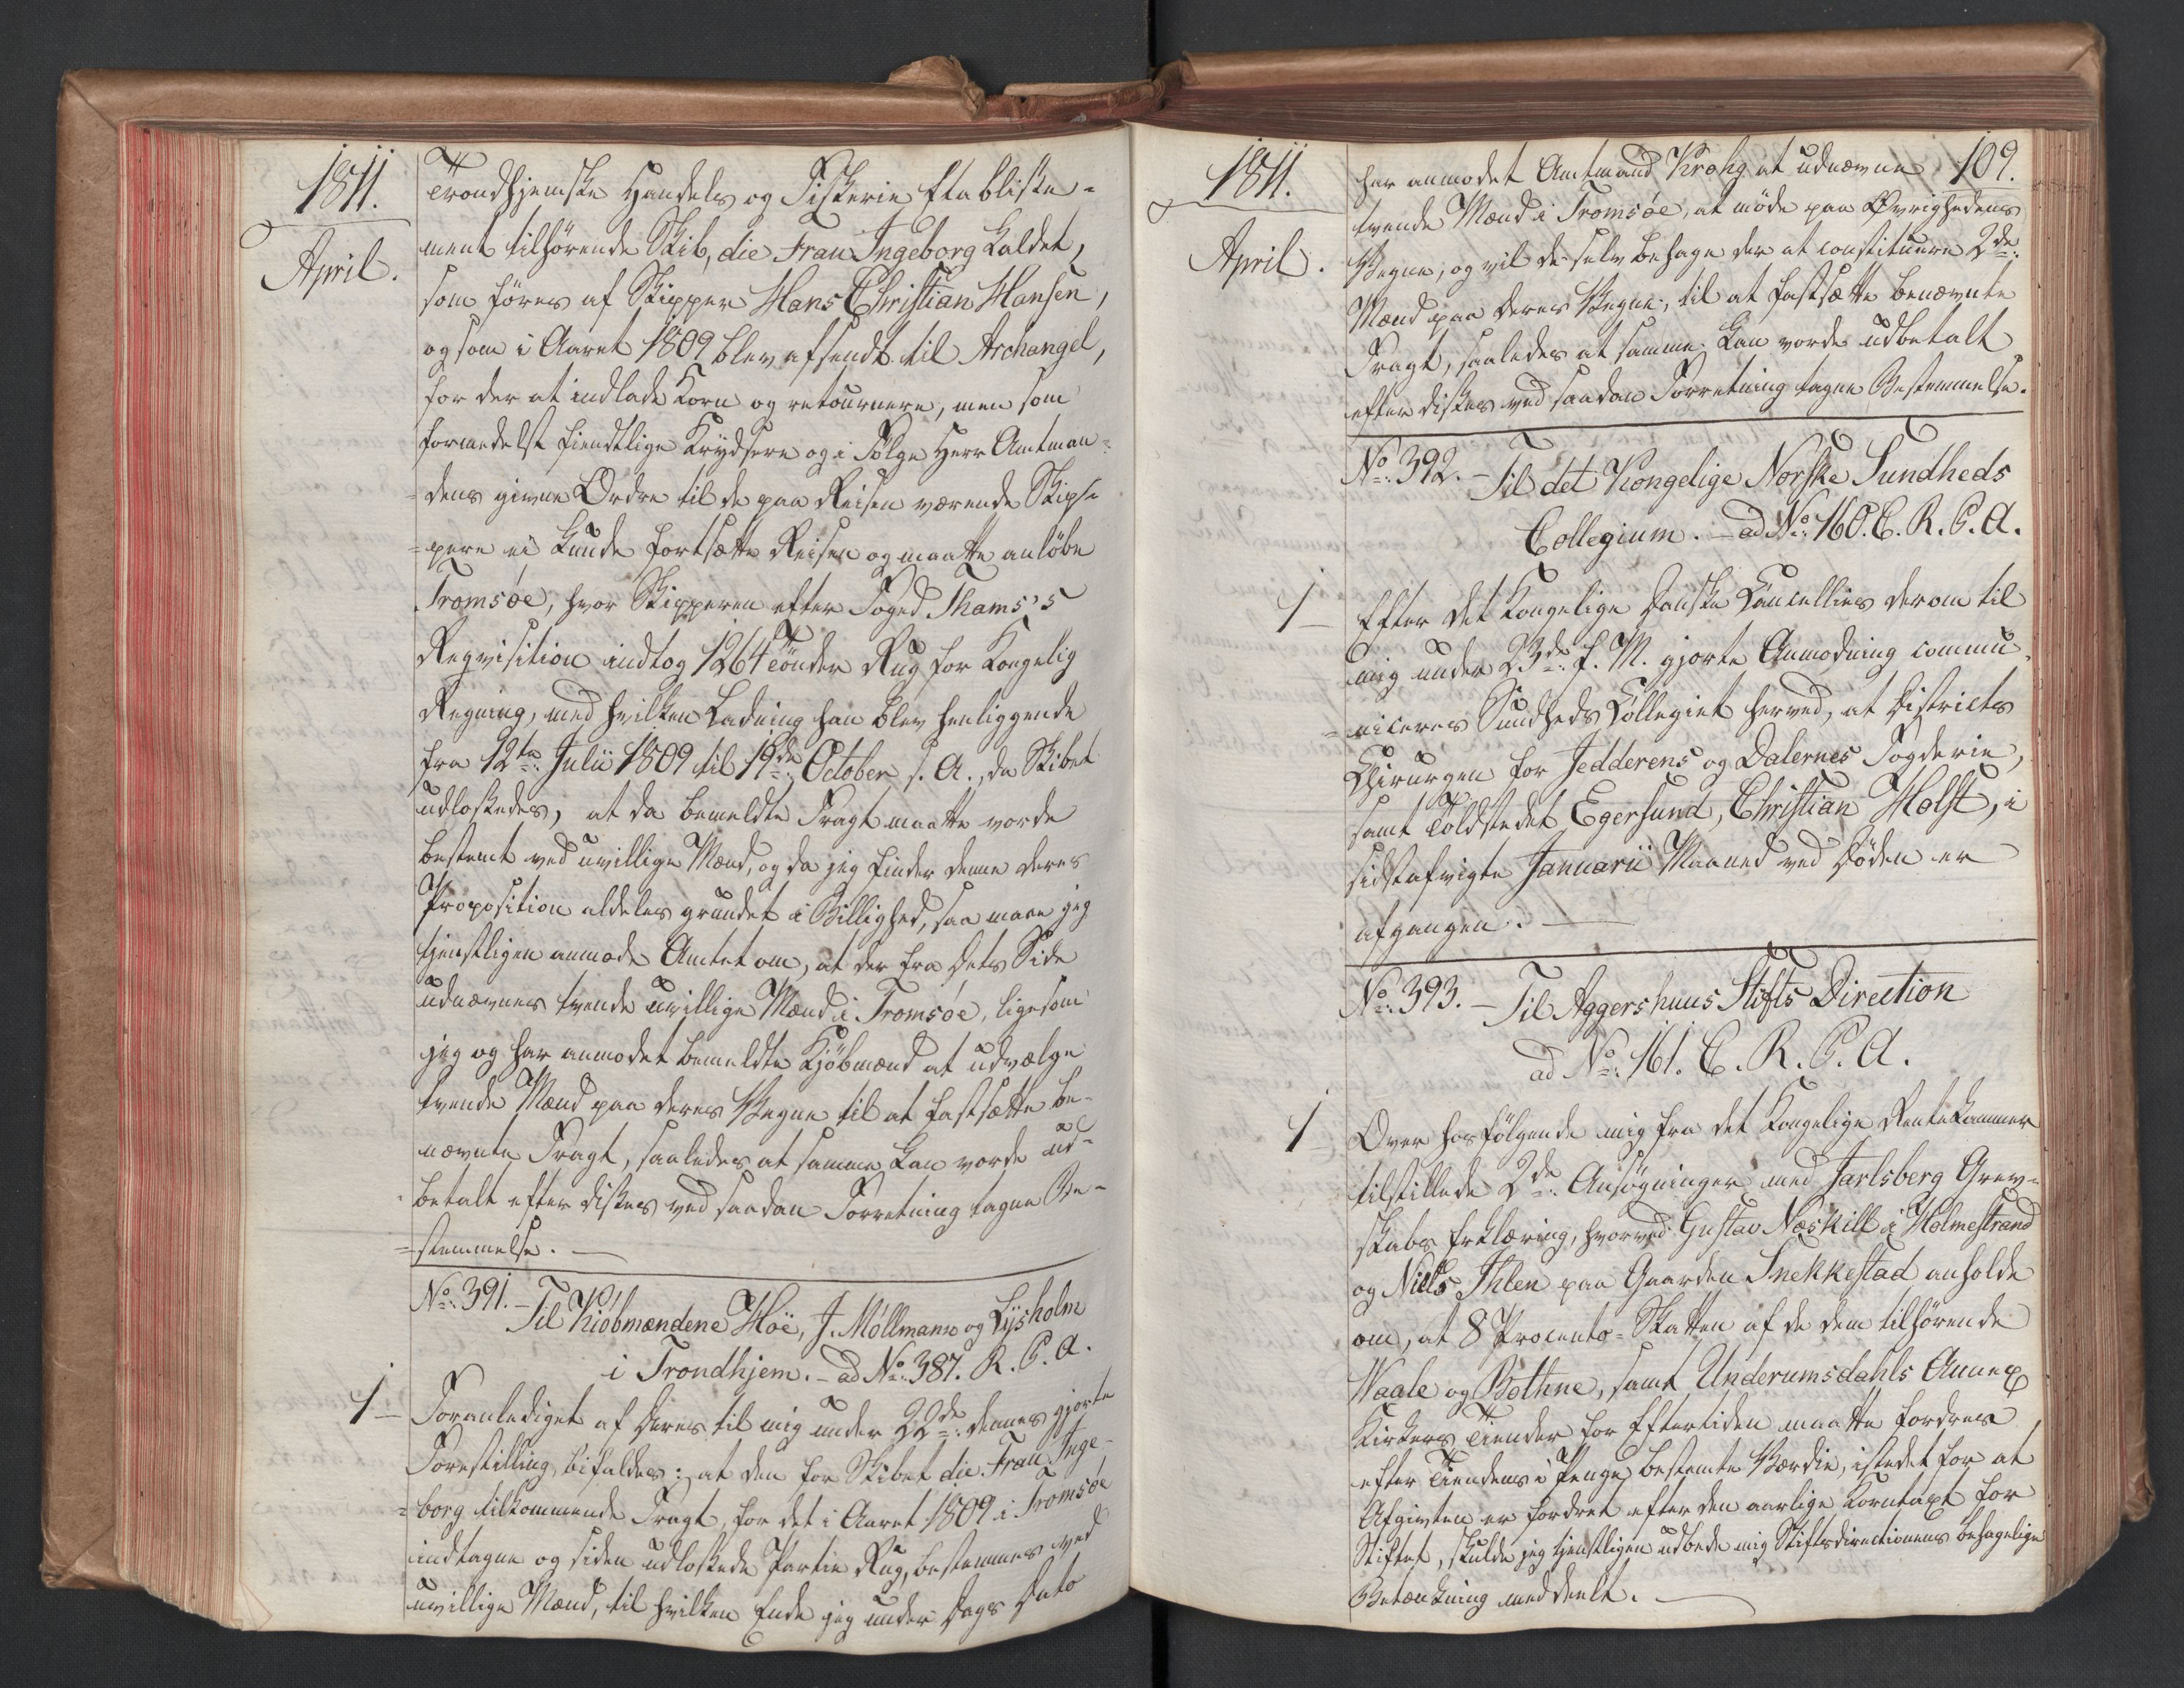 1811.
April.
Trondhjemske Handels og Fiskerie Etablisse-
ment tilhørende Skib, die Frau Ingeborg kaldet,
som føres af Skipper Hans Christian Hansen,
og som i Aaret 1809 blev afsendt til Archangel,
for der at indlade Korn og retournere, men som
formedelst fiendtlige Krydsere og i Følge Herr Amtman-
=dens givne Ordre til de paa Reisen værende Skip-
=pere ei kunde fortsætte Reisen og maatte anløbe
Tromsøe, hvor Skipperen efter Foged Thams's
Reqvisition indtog 1264 Tønder Rug for Kongelig
Regning, med hvilken Ladning han blev henliggende
fra 12te Julii 1809 til 19de October s. A., da Skibet
udlossedes, at da bemeldte Fragt maatte vorde
bestemt ved uvillige Mænd, og da jeg finder denne deres
Proposition aldeles grundet i Billighed, saa maae jeg
tjenstligen anmode Amtet om, at der fra dets Side
udnævnes tvende uvillige Mænd i Tromsøe, ligesom
jeg og har anmodet bemeldte Kjøbmænd at udvælge
tvende Mænd paa deres Vegne til at fastsætte be-
nævnte Fragt, saaledes at samme kan vorde ud-
=betalt efter disses ved saadan Forretning tagne Be-
=stemmelse. —
No: 391. - Til Kiøbmændene Høë, J. Møllmann og Lysholm
i Trondhjem. - ad No: 387. R. C. A.
1 - Foranlediget af deres til mig under 22de dennes gjorte
Forestilling, bifaldes: at den for Skibet die Frau Inge-
=borg tilkommende Fragt, for det i Aaret 1809 i Tromsøe
indtagne og siden udlossede Partie Rug, bestemmes ved
uvillige Mænd, til hvilken Ende jeg under Dags Dato
1811.
April.
109.
har anmodet Amtmand Krohg at udnævne
tvende Mænd i Tromsøe, at møde paa Øvrighedens
Vegne, og vil de selv behage der at constituere 2de
Mænd paa deres Vegne, til at fastsætte benævnte
Fragt, saaledes at samme kan vorde udbetalt
efter disses ved saadan Forretning tagne Bestemmelse.
No: 392. - Til det Kongelige Norske Sundheds
Collegium. - ad No: 160. C. R. C. A.
1 - Efter det Kongelige Danske Cancellies derom til
mig under 23de f. M. gjorte Anmodning commu-
=niceres Sundheds Collegiet herved, at Districts
Chirurgen for Jedderens og Dalernes Fogderie,
samt Toldstedet Egersund, Christian Holst, i
sidstafvigte Januarii Maaned ved Døden er
afgangen. —
No: 393. - Til Aggershuus Stifts Direction
ad No: 161. C. R. C. A.
1 Over hosfølgende mig fra det Kongelige Rentekammer
tilstillede 2de Ansøgninger med Jarlsberg Grev-
skabs Erklæring, hvorved Gustav Næskill i Holmestrand
og Niels Ihlen paa Gaarden Snekkestad anholde
om, at 8 Procento-Skatten af de dem tilhørende
Waale og Bothne, samt Underumsdahls Annex
Kirkers Tiender for Eftertiden maatte fordres
efter Tiendens i Penge bestemte Værdie, istedet for at
Afgivten er fordret efter den aarlige Korntaxt for
Stiftet, skulde jeg tjenstligen udbede mig Stiftsdirectionens behagelige
Betænkning meddeelt. —